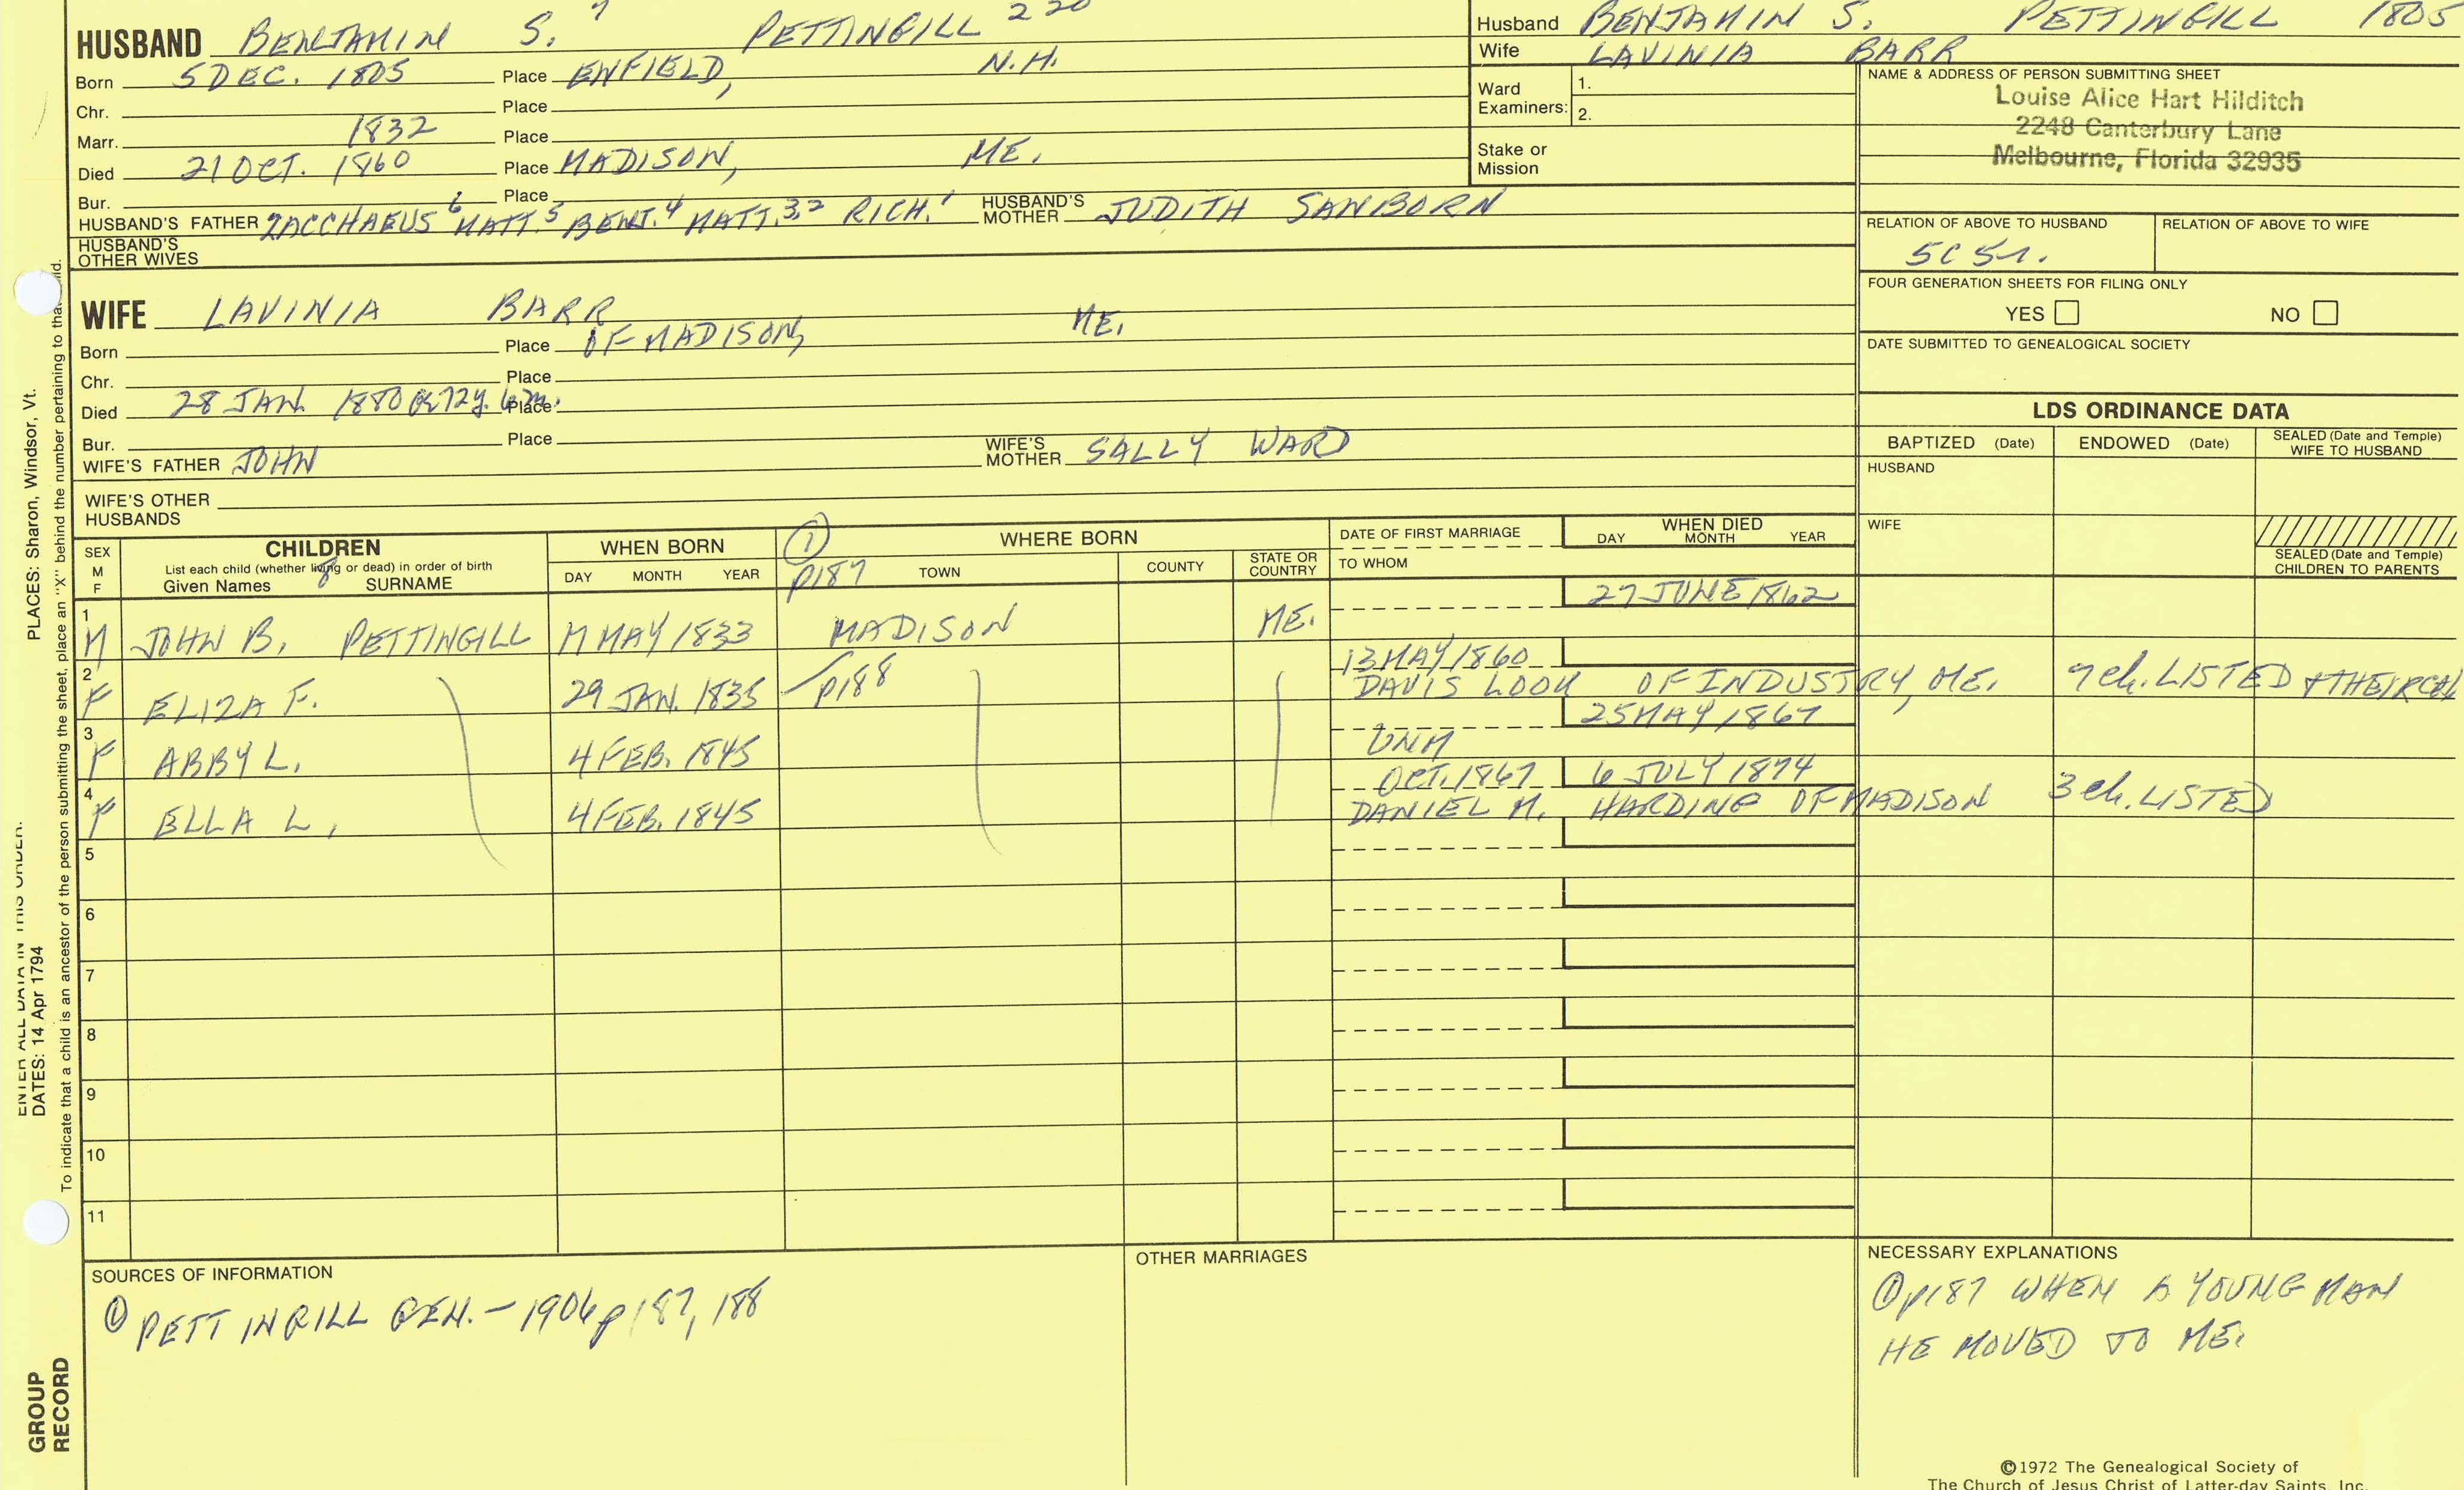 HUSBAND BENJAMIN S. 7 PETTINGILL 220
Born 5 DEC. 1805 Place ENFIELD, N.H.
Chr. Place
Marr. 1832 Place
Died 21 OCT. 1860 Place MADISON, ME.
Bur. Place
HUSBAND'S FATHER ZACCHAEUS 6 MATT. 5 BENJ. 4 MATT. 3,2 RICH. 1 HUSBAND'S MOTHER JUDITH SANBORN
HUSBAND'S OTHER WIVES
Husband BENJAMIN S. PETTINGILL 1805
Wife LAVINIA BARR
Ward Examiners: 1.
2.
Stake or Mission
NAME & ADDRESS OF PERSON SUBMITTING SHEET
Louise Alice Hart Hilditch
2248 Canterbury Lane
Melbourne, Florida 32935
RELATION OF ABOVE TO HUSBAND RELATION OF ABOVE TO WIFE
5C 5r.
FOUR GENERATION SHEETS FOR FILING ONLY
YES NO
DATE SUBMITTED TO GENEALOGICAL SOCIETY
WIFE LAVINIA BARR
Born Place OF MADISON, ME.
Chr. Place
Died 28 JAN. 1880 72y. 6m. Place
Bur. Place
WIFE'S FATHER JOHN WIFE'S MOTHER SALLY WARD
WIFE'S OTHER HUSBANDS
LDS ORDINANCE DATA
BAPTIZED (Date) ENDOWED (Date) SEALED (Date and Temple) WIFE TO HUSBAND
HUSBAND
WIFE
SEALED (Date and Temple) CHILDREN TO PARENTS
SEX M F
CHILDREN
List each child (whether living or dead) in order of birth
Given Names 8 SURNAME
WHEN BORN
DAY MONTH YEAR
① p187
WHERE BORN
TOWN COUNTY STATE OR COUNTRY
DATE OF FIRST MARRIAGE
TO WHOM
WHEN DIED
DAY MONTH YEAR
27 JUNE 1862
1 M JOHN B. PETTINGILL 17 MAY 1833 MADISON ME.
13 MAY 1860
2 F ELIZA F. 29 JAN. 1835 p188 DAVIS LOOK OF INDUSTRY, ME. 7 ch. LISTED + THEIR
25 MAY 1867
3 F ABBY L. 4 FEB. 1845 UNM
OCT. 1867 6 JULY 1874
4 F ELLA L. 4 FEB. 1845 DANIEL M. HARDING OF MADISON 3 ch. LISTED
5
6
7
8
9
10
11
SOURCES OF INFORMATION
① PETTINGILL GEN. - 1906 p187, 188
OTHER MARRIAGES
NECESSARY EXPLANATIONS
① p187 WHEN A YOUNG MAN
HE MOVED TO ME.
©1972 The Genealogical Society of
The Church of Jesus Christ of Latter-day Saints, Inc.
ENTER ALL DATA IN THIS ORDER:
PLACES: Sharon, Windsor, Vt.
DATES: 14 Apr 1794
To indicate that a child is an ancestor of the person submitting the sheet, place an "X" behind the number pertaining to that child.
GROUP
RECORD